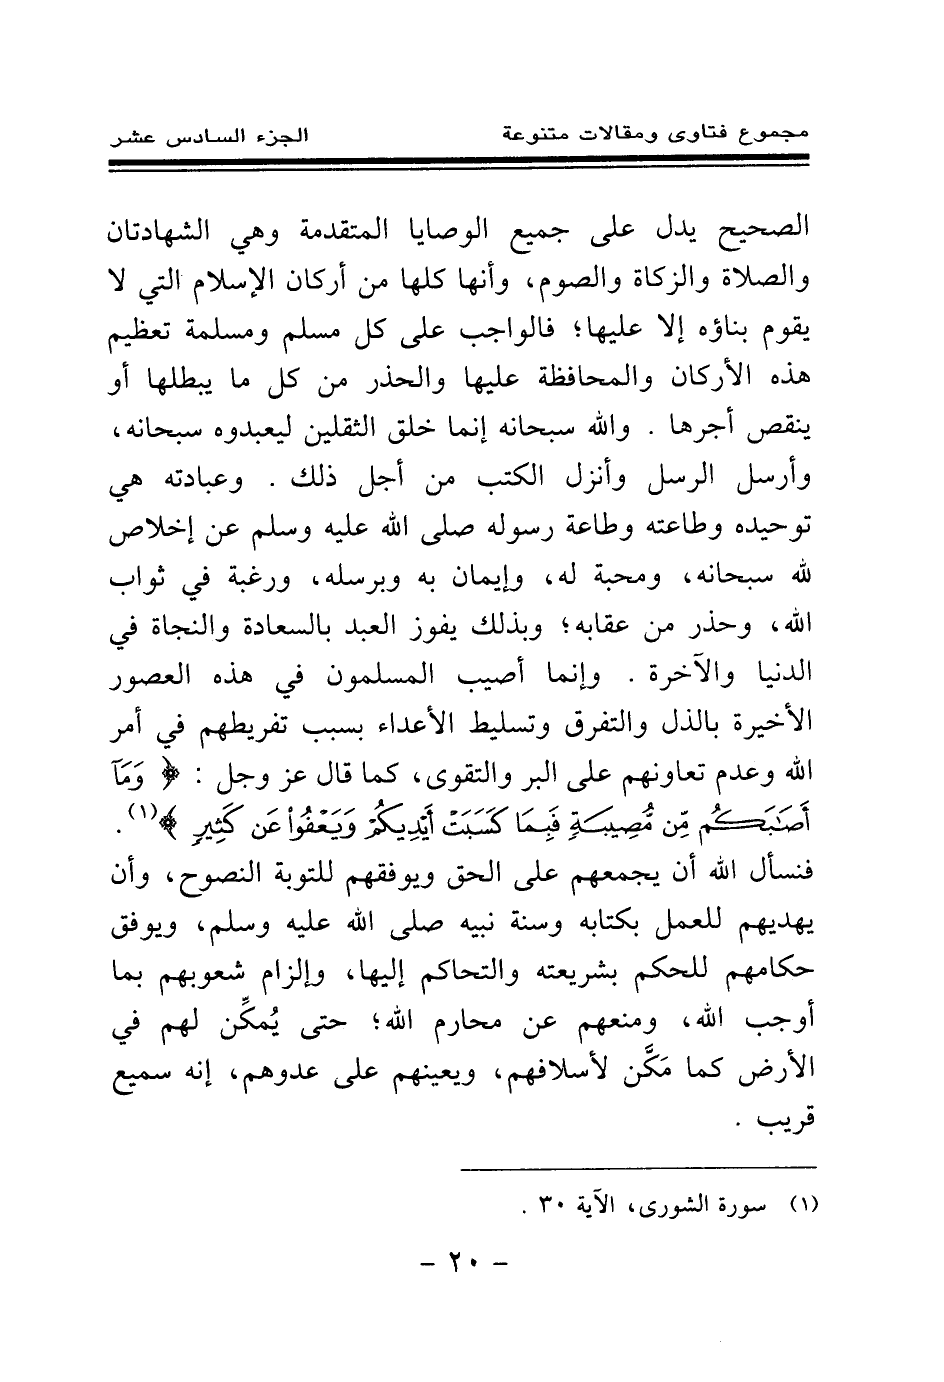 مجموع فتاوى ومقالات متنوعة الجزء السادس عشر
الصحيح يدل على جميع الوصايا المتقدمة وهي الشهادتان
والصلاة والزكاة والصوم، وأنها كلها من أركان الإسلام التي لا
يقوم بناؤه إلا عليها؛ فالواجب على كل مسلم ومسلمة تعظيم
هذه الأركان والمحافظة عليها والحذر من كل ما يبطلها أو
ينقص أجرها . والله سبحانه إنما خلق الثقلين ليعبدوه سبحانه،
وأرسل الرسل وأنزل الكتب من أجل ذلك . وعبادته هي
توحيده وطاعته وطاعة رسوله صلى الله عليه وسلم عن إخلاص
لله سبحانه، ومحبة له، وإيمان به وبرسله، ورغبة في ثواب
الله، وحذر من عقابه؛ وبذلك يفوز العبد بالسعادة والنجاة في
الدنيا والآخرة . وإنما أصيب المسلمون في هذه العصور
الأخيرة بالذل والتفرق وتسليط الأعداء بسبب تفريطهم في أمر
الله وعدم تعاونهم على البر والتقوى، كما قال عز وجل : ﴿ وَمَآ
أَصَٰبَكُم مِّن مُّصِيبَةٍ فَبِمَا كَسَبَتْ أَيْدِيكُمْ وَيَعْفُوا۟ عَن كَثِيرٍ ﴾(١) .
فنسأل الله أن يجمعهم على الحق ويوفقهم للتوبة النصوح، وأن
يهديهم للعمل بكتابه وسنة نبيه صلى الله عليه وسلم، ويوفق
حكامهم للحكم بشريعته والتحاكم إليها، وإلزام شعوبهم بما
أوجب الله، ومنعهم عن محارم الله؛ حتى يُمكِّن لهم في
الأرض كما مَكَّن لأسلافهم، ويعينهم على عدوهم، إنه سميع
قريب .
(١) سورة الشورى، الآية ٣٠ .
- ٢٠ -